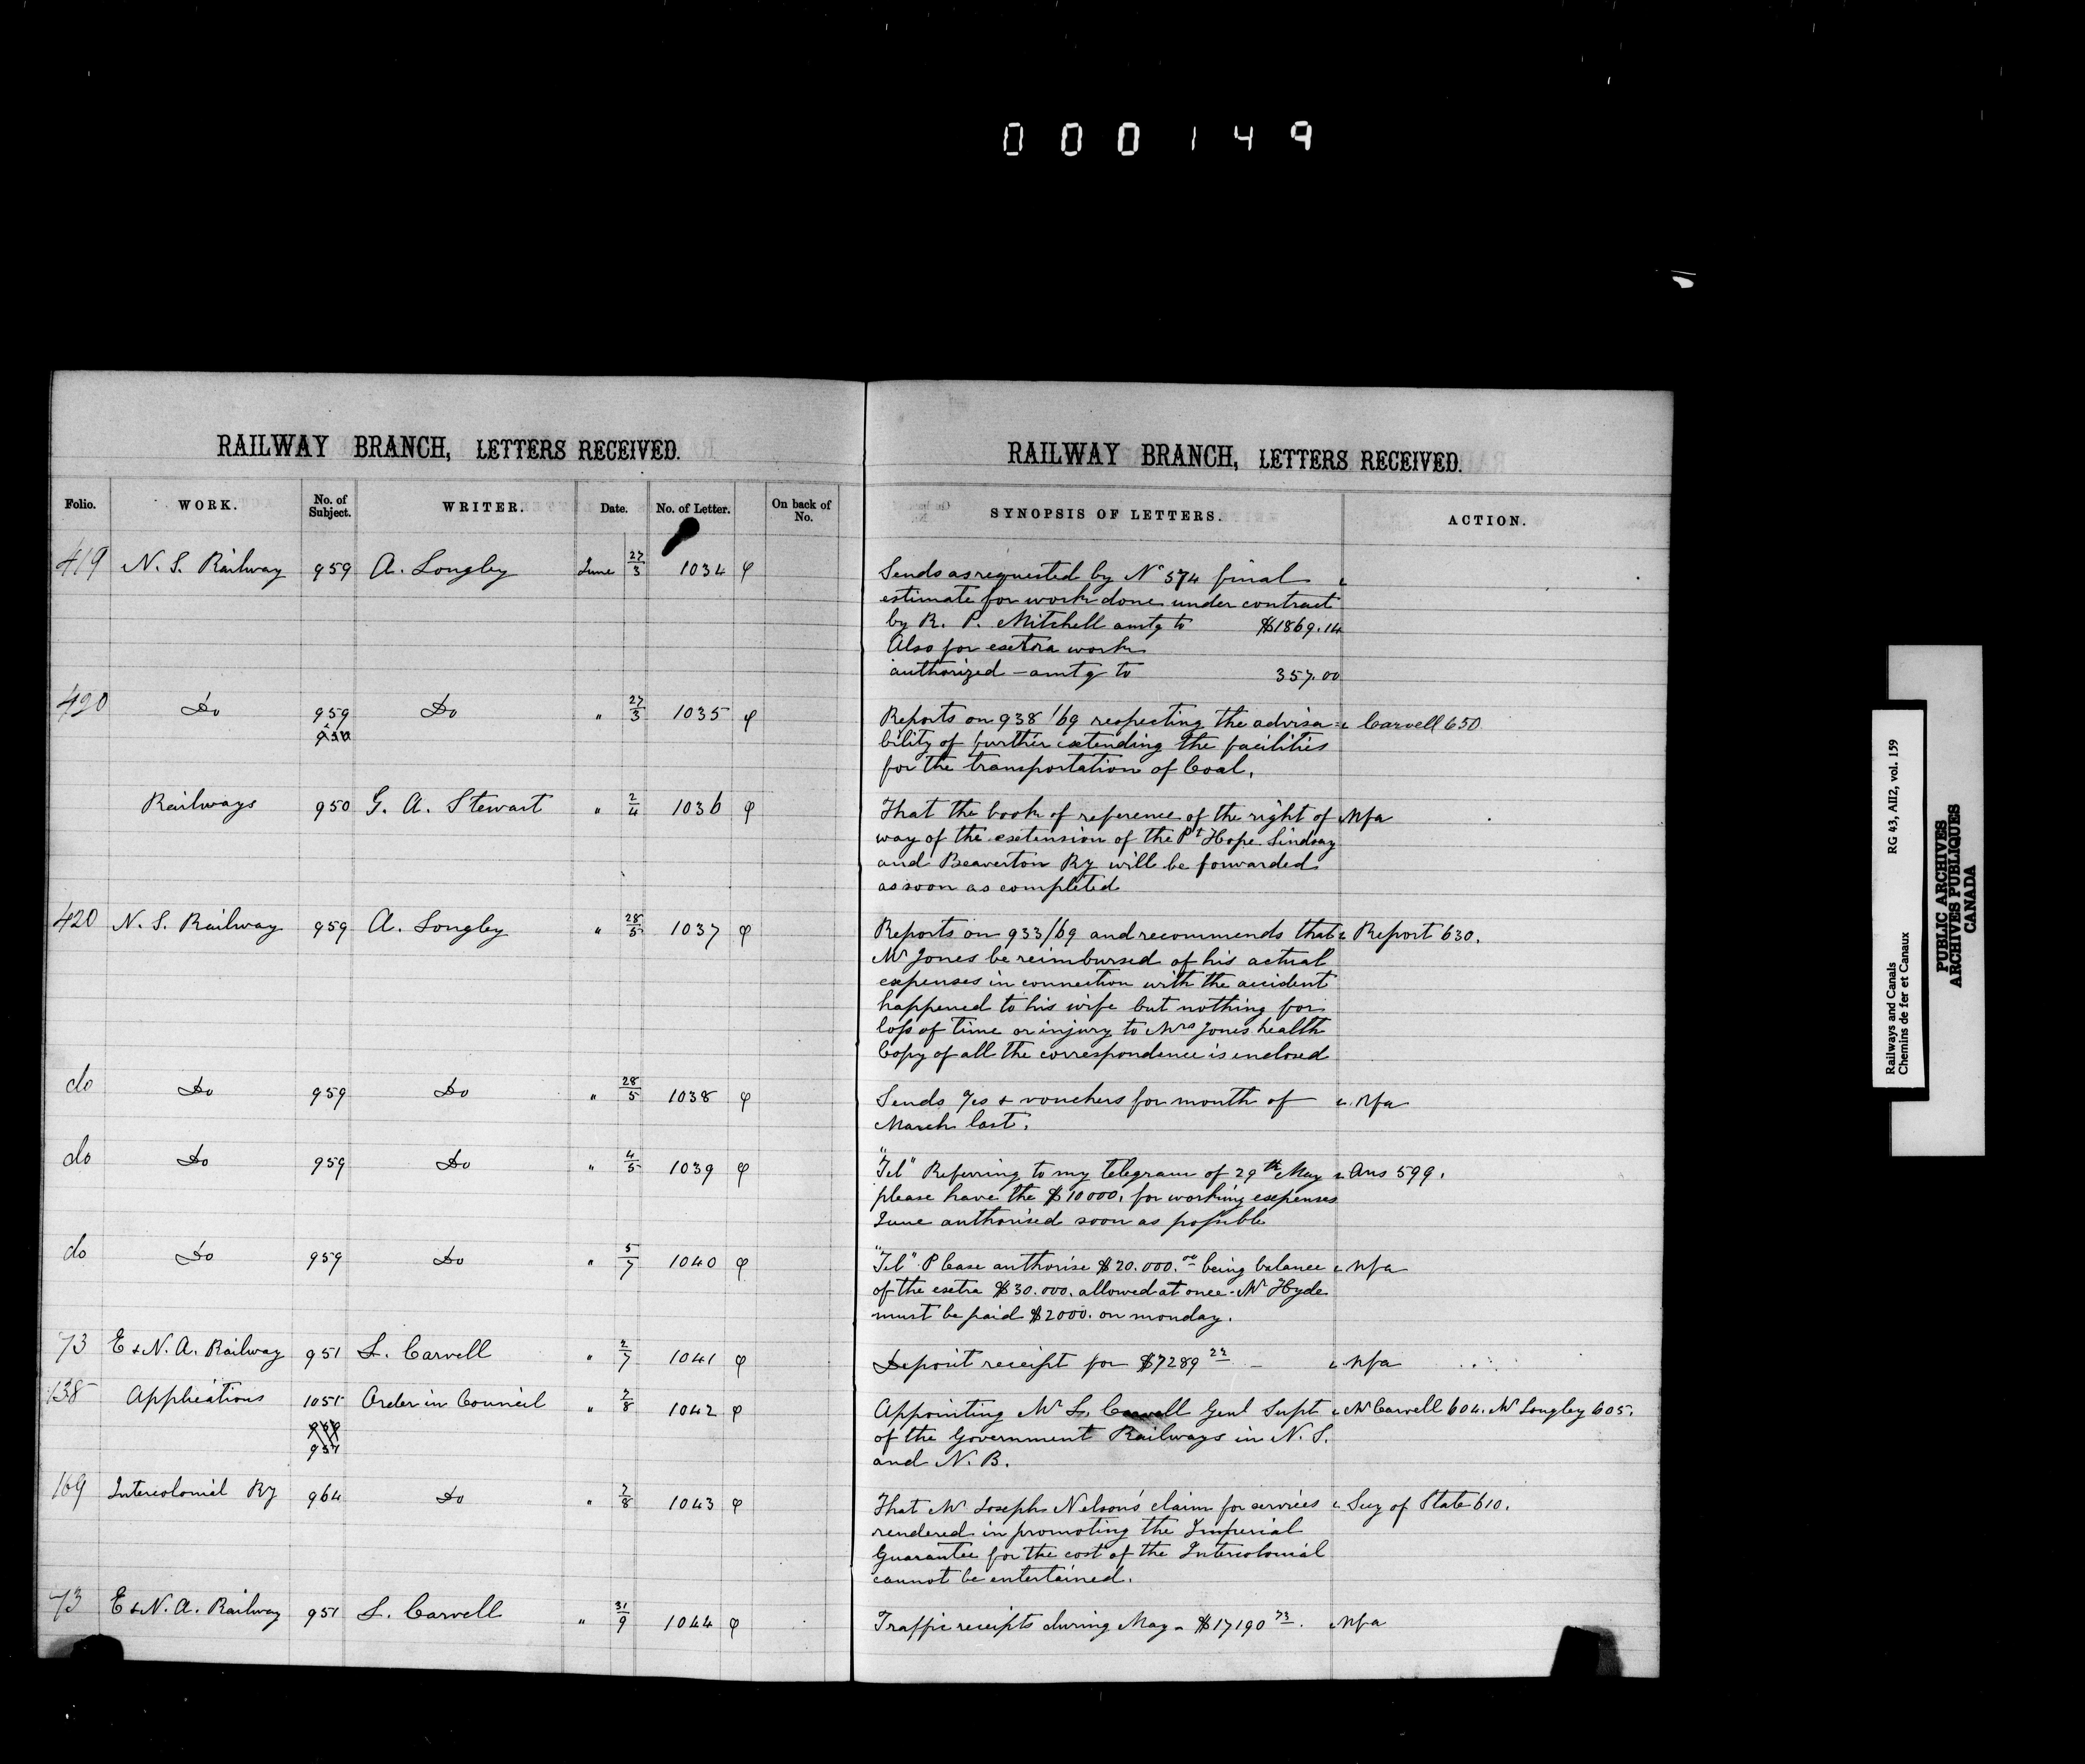 000149
RAILWAY BRANCH, LETTERS RECEIVED.
Folio. WORK. No. of Subject. WRITER. Date. No. of Letter. On back of No.
419 N. S. Railway 959 A. Longley June 27/3 1034 φ
420 Do 959 Do " 27/3 1035 φ
Railways 950 G. A. Stewart " 2/4 1036 φ
420 N. S. Railway 959 A. Longley " 28/5 1037 φ
do Do 959 Do " 28/5 1038 φ
do Do 959 Do " 4/5 1039 φ
do Do 959 Do " 5/7 1040 φ
73 E & N. A. Railway 951 L. Carvell " 2/7 1041 φ
138 Applications 1051 Order in Council " 7/8 1042 φ
951
169 Intercolonial Ry 964 Do " 7/8 1043 φ
73 E & N. A. Railway 951 L. Carvell " 31/9 1044 φ
RAILWAY BRANCH, LETTERS RECEIVED.
SYNOPSIS OF LETTERS. ACTION.
Sends as requested by No 574 final
estimate for work done under contract
by R. P. Mitchell amtg to $1869.14
Also for extra work
authorized - amtg to 357.00
Reports on 938/69 respecting the advisa= Carvell 650
bility of further extending the facilities
for the transportation of Coal.
That the book of reference of the right of Nfa
way of the extension of the Pt Hope Lindsay
and Beaverton Ry will be forwarded
as soon as completed
Reports on 933/69 and recommends that Report 630.
Mr Jones be reimbursed of his actual
expenses in connection with the accident
happened to his wife but nothing for
loss of time or injury to Mrs Jones health
Copy of all the correspondence is enclosed
Sends %s & vouchers for month of Nfa
March last.
"Tel" Referring to my telegram of 29th May Ans 599.
please have the $10000. for working expenses
June authorised soon as possible
"Tel" Please authorise $20.000.00 being balance Nfa
of the extra $30.000. allowed at once. Mr Hyde
must be paid $2000. on monday.
Deposit receipt for $7289 22 - Nfa
Appointing Mr L. Carvell Genl Supt Mr Carvell 604. Mr Longley 605.
of the Government Railways in N. S.
and N. B.
That Mr Joseph Nelson's claim for services Secy of State 610.
rendered in promoting the Imperial
Guarantee for the cost of the Intercolonial
cannot be entertained.
Traffic receipts during May - $17190 73. Nfa
Railways and Canals RG 43, AII2, vol. 159
Chemins de fer et Canaux
PUBLIC ARCHIVES
ARCHIVES PUBLIQUES
CANADA